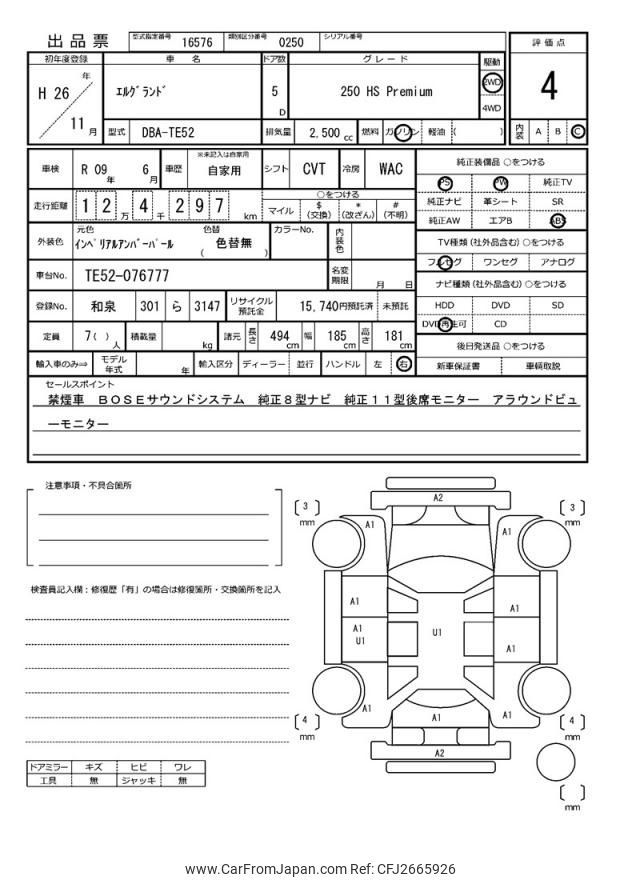 出品票 型式指定番号 16576 類別区分番号 0250 シリアル番号
評価点
4
内装 A B C
初年度登録 車名 ドア数 グレード 駆動
H 26 年 11 月
ｴﾙｸﾞﾗﾝﾄﾞ
5 D
250 HS Premium
2WD
4WD
型式 DBA-TE52 排気量 2,500 cc 燃料 ガソリン 軽油 ( )
車検 R 09 年 6 月 車歴 ※未記入は自家用 自家用 シフト CVT 冷房 WAC
走行距離 1 2 万 4 千 2 9 7 km
○をつける
マイル $ (交換) * (改ざん) # (不明)
外装色 元色 ｲﾝﾍﾟﾘｱﾙｱﾝﾊﾞｰﾊﾟｰﾙ 色替 ( 色替無 ) カラーNo. 内装色
車台No. TE52-076777 名変期限 月 日
登録No. 和泉 301 ら 3147 リサイクル預託金 15,740円預託済 未預託
定員 7 ( ) 人 積載量 kg 諸元 長さ 494 cm 幅 185 cm 高さ 181 cm
輸入車のみ⇒ モデル年式 年 輸入区分 ディーラー 並行 ハンドル 左 右
純正装備品 ○をつける
PS PW 純正TV
純正ナビ 革シート SR
純正AW エアB ABS
TV種類 (社外品含む) ○をつける
フルセグ ワンセグ アナログ
ナビ種類 (社外品含む) ○をつける
HDD DVD SD
DVD再生可 CD
後日発送品 ○をつける
新車保証書 車輌取説
セールスポイント
禁煙車 ＢＯＳＥサウンドシステム 純正８型ナビ 純正１１型後席モニター アラウンドビュ
ーモニター
注意事項・不具合箇所
検査員記入欄：修復歴「有」の場合は修復箇所・交換箇所を記入
ドアミラー キズ ヒビ ワレ
工具 無 ジャッキ 無
A2
3 mm
3 mm
A1
A1
A1
A1
A1
U1
U1
A1
A1
A1
A1
4 mm
4 mm
A2
mm
www.CarFromJapan.com Ref: CFJ2665926